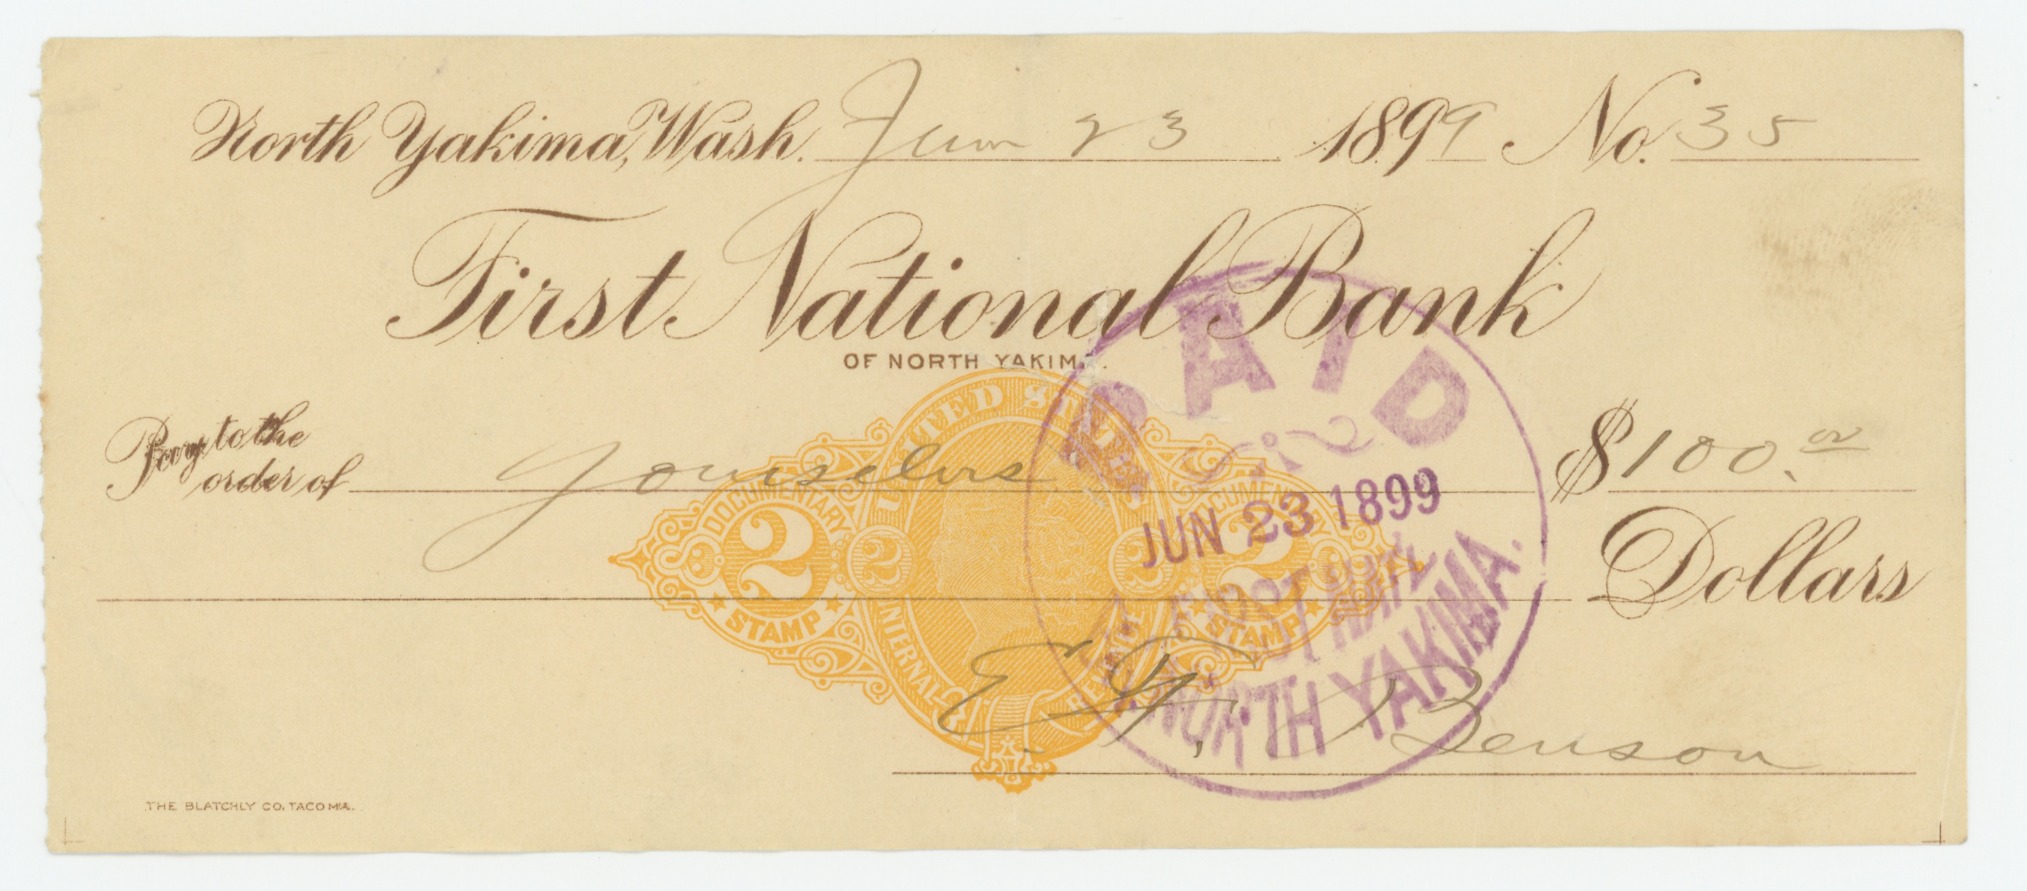 North Yakima, Wash. June 23 1899 No. 35
First National Bank
OF NORTH YAKIMA.
Pay to the order of Yourselves $100.00
Dollars
UNITED STATES
DOCUMENTARY DOCUMENTARY
2 2 2 2
STAMP STAMP
INTERNAL REVENUE
PAID
JUN 23 1899
FIRST NAT'L
NORTH YAKIMA.
E. F. Benson
THE BLATCHLY CO. TACOMA.